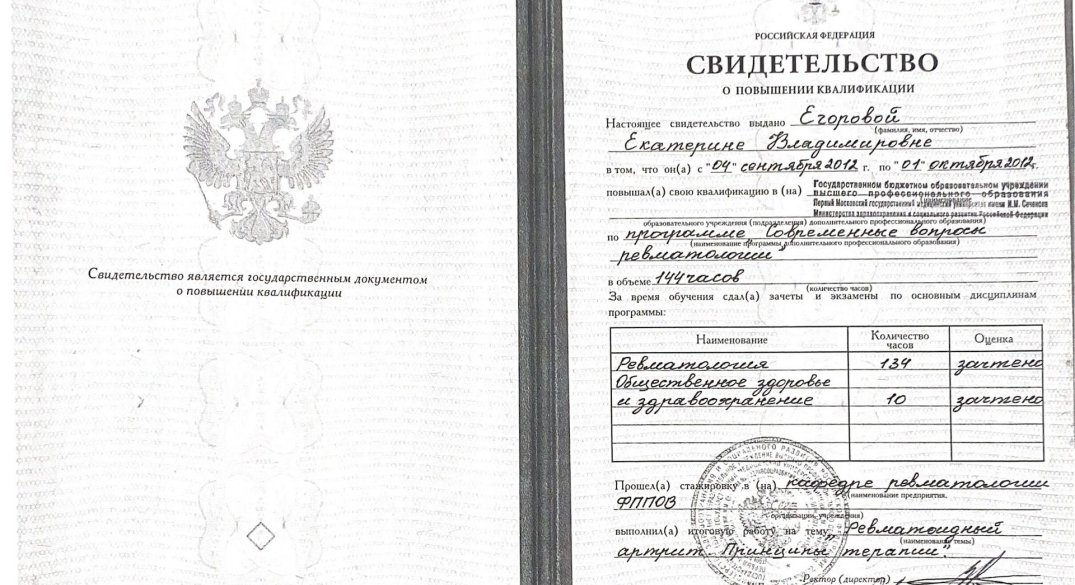 Свидетельство является государственным документом
о повышении квалификации
РОССИЙСКАЯ ФЕДЕРАЦИЯ
СВИДЕТЕЛЬСТВО
О ПОВЫШЕНИИ КВАЛИФИКАЦИИ
Настоящее свидетельство выдано Егоровой
(фамилия, имя, отчество)
Екатерине Владимировне
в том, что он(а) с "04" сентября 2012 г. по "01" октября 2012 г.
повышал(а) свою квалификацию в (на) Государственном бюджетном образовательном учреждении
высшего профессионального образования
Первый Московский государственный медицинский университет имени И.М. Сеченова
Министерства здравоохранения и социального развития Российской Федерации
образовательного учреждения (подразделения) дополнительного профессионального образования)
по программе „Современные вопросы
(наименование программы дополнительного профессионального образования)
ревматологии"
в объеме 144 часов
(количество часов)
За время обучения сдал(а) зачеты и экзамены по основным дисциплинам
программы:
Наименование Количество часов Оценка
Ревматология 134 зачтено
Общественное здоровье
и здравоохранение 10 зачтено
Прошел(а) стажировку в (на) кафедре ревматологии
(наименование предприятия,
ФППОВ
организации, учреждения)
выполнил(а) итоговую работу на тему „Ревматоидный
(наименование темы)
артрит. Принципы терапии".
Ректор (директор)